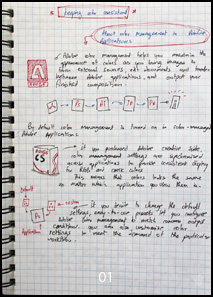 * Keeping color consistent *
About color management in Adobe
Applications
✓ Adobe color management helps you maintain the
appearance of colors as you bring images in
from external sources, edit documents and transfer
between Adobe applications, and output your
finished compositions
By default color management is turned on in color-managed
Adobe Applications.
CS
→ If you purchased Adobe creative suite
color management settings are synchronized
across applications to provide consistent display
for RGB and CMYK colors
This means that colors looks the same
no matter which application you view them in.
Default
Ps
Application
→ If you decide to change the default
settings, easy-to-use presets let you configure
Adobe color management to match common output
conditions. you can also customize color
settings to meet the demands of the particular
workflow.
01